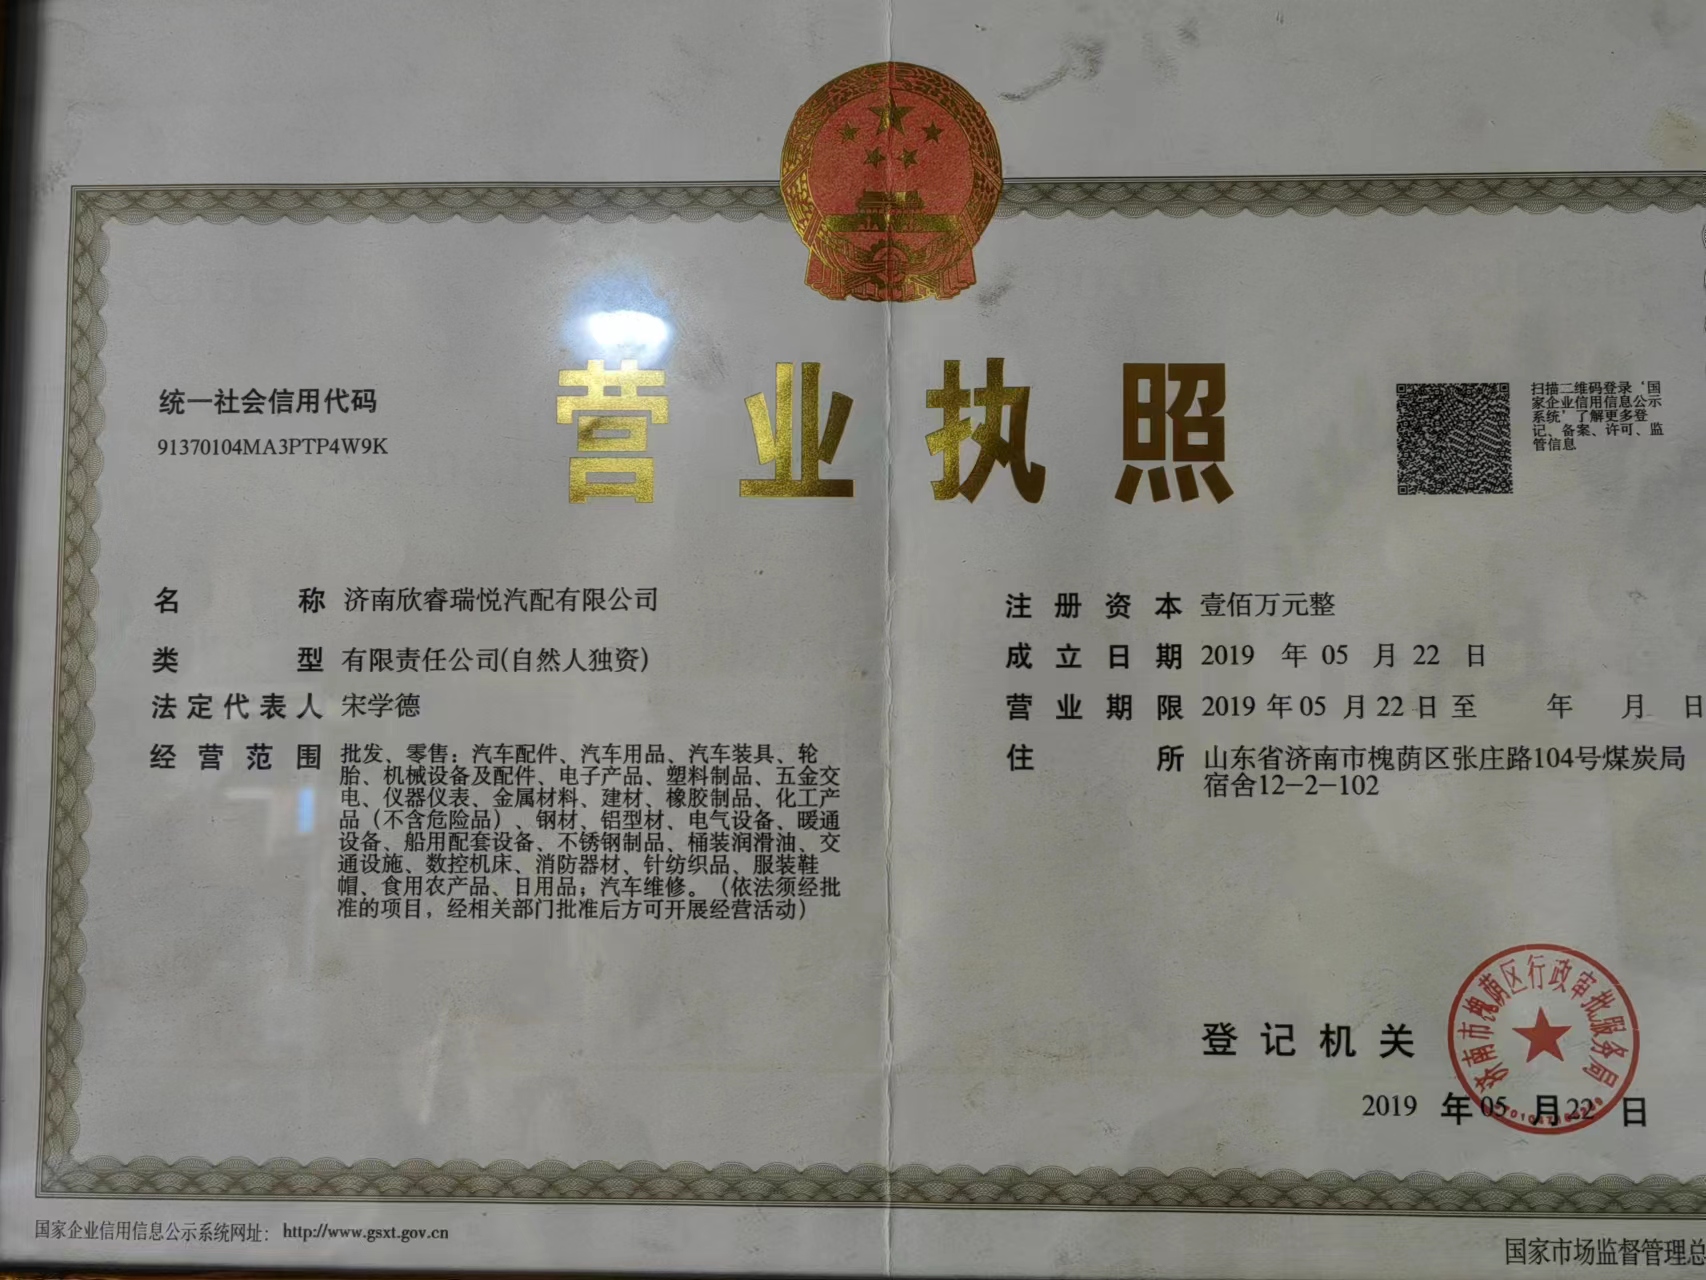 营业执照
统一社会信用代码
91370104MA3PTP4W9K
扫描二维码登录‘国
家企业信用信息公示
系统’了解更多登
记、备案、许可、监
管信息
名称 济南欣睿瑞悦汽配有限公司
类型 有限责任公司(自然人独资)
法定代表人 宋学德
经营范围 批发、零售：汽车配件、汽车用品、汽车装具、轮
胎、机械设备及配件、电子产品、塑料制品、五金交
电、仪器仪表、金属材料、建材、橡胶制品、化工产
品（不含危险品）、钢材、铝型材、电气设备、暖通
设备、船用配套设备、不锈钢制品、桶装润滑油、交
通设施、数控机床、消防器材、针纺织品、服装鞋
帽、食用农产品、日用品；汽车维修。（依法须经批
准的项目，经相关部门批准后方可开展经营活动）
注册资本 壹佰万元整
成立日期 2019 年 05 月 22 日
营业期限 2019 年 05 月 22 日 至 年 月 日
住所 山东省济南市槐荫区张庄路104号煤炭局
宿舍12-2-102
登记机关
济南市槐荫区行政审批服务局
2019 年 05 月 22 日
国家企业信用信息公示系统网址： http://www.gsxt.gov.cn
国家市场监督管理总